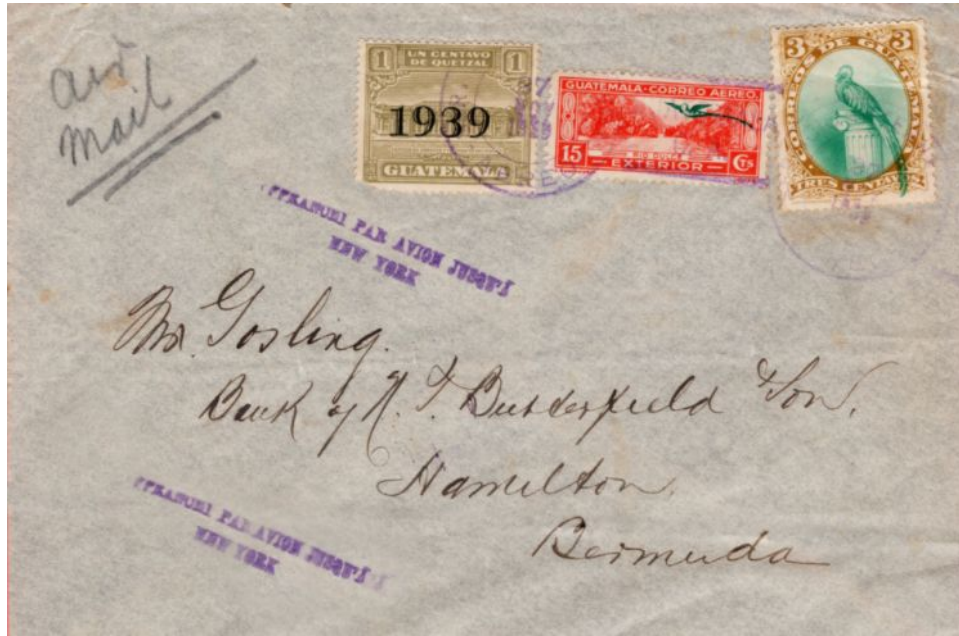 air
mail
1 UN CENTAVO DE QUETZAL 1
1939
GUATEMALA
GUATEMALA-CORREO AEREO
RIO DULCE
15 EXTERIOR Cts
3 CORREOS DE GUATEMALA 3
TRES CENTAVOS
PAR AVION JUSQU'À
NEW YORK
Mr. Gosling.
Bank of N. T. Butterfield & Son,
Hamilton,
Bermuda
PAR AVION JUSQU'À
NEW YORK